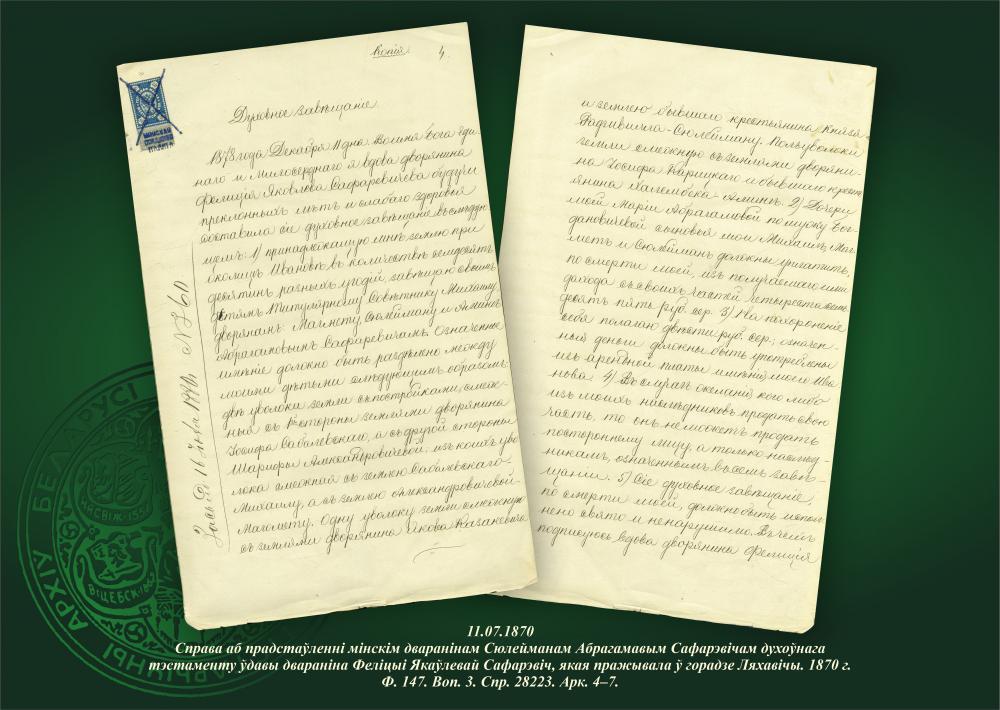 копія
4.
МИНСКАЯ
ПАЛАТА
Духовное завѣщаніе.
1878 года Декабря дня Во имя Бога Еди-
наго и Милосерднаго я вдова дворянина
Фелиція Яковлева Сафаревичева будучи
преклонныхъ лѣтъ и слабаго здоровья
составила сіе духовное завѣщаніе въ слѣдую-
щемъ: 1) принадлежащую мнѣ землю при
околицѣ Ивановѣ въ количествѣ семдесятъ
десятинъ разныхъ угодій, завѣщаю своимъ
дѣтямъ Титулярному Совѣтнику Михаилу
дворянамъ: Магмету, Сюлейману и
Абрагамовымъ Сафаревичамъ. Означенное
имѣніе должно быть раздѣлено между
моими дѣтьми слѣдующимъ образомъ:
двѣ уволоки земли съ постройками, смеж-
ныя съ стороны землями дворянина
Іосифа Сабалевскаго, а съ другой стороны
Шарифы Александровичевой; изъ коихъ уво
лока смежная съ землею Сабалевскаго-
Михаилу, а съ землею Александровичевой-
Магомету. Одну уволоку земли смежную
съ землями дворянина Якова Казакевича
и землею бывшаго крестьянина Князя
Радзивилла-Сюлейману. Полууволоки
земли смежную съ землями дворяни-
на Іосифа и бывшаго крест
янина Халембека - 2) Дочери
моей Маріи Абрагамовой по мужу Бог-
дановичевой сыновья мои Михаилъ, Маг-
метъ и Сюлейманъ должны уплатить,
по смерти моей, изъ получаемаго ими
дохода съ своихъ частей четыреста
десятъ пять руб. сер. 3) На похороненіе
себя полагаю двѣсти руб. сер.; означен-
ныя деньги должны быть употреблены
изъ арендной платы имѣнія моего Ива
нова. 4) Въ случаѣ желанія кого либо
изъ моихъ наслѣдниковъ продать свою
часть, то онъ не можетъ продать
постороннему лицу, а только наслѣд-
никамъ, означеннымъ въ семъ завѣ-
щаніи. 5) Сіе духовное завѣщаніе
по смерти моей, должно быть испол
нено свято и ненарушимо. Въ чемъ
подписуюсь вдова дворянина Фелиція
АРХІЎ БЕЛАРУСІ
11.07.1870
Справа аб прадстаўленні мінскім дваранінам Сюлейманам Абрагамавым Сафарэвічам духоўнага
тэстаменту ўдавы двараніна Феліцыі Якаўлевай Сафарэвіч, якая пражывала ў горадзе Ляхавічы. 1870 г.
Ф. 147. Воп. 3. Спр. 28223. Арк. 4–7.